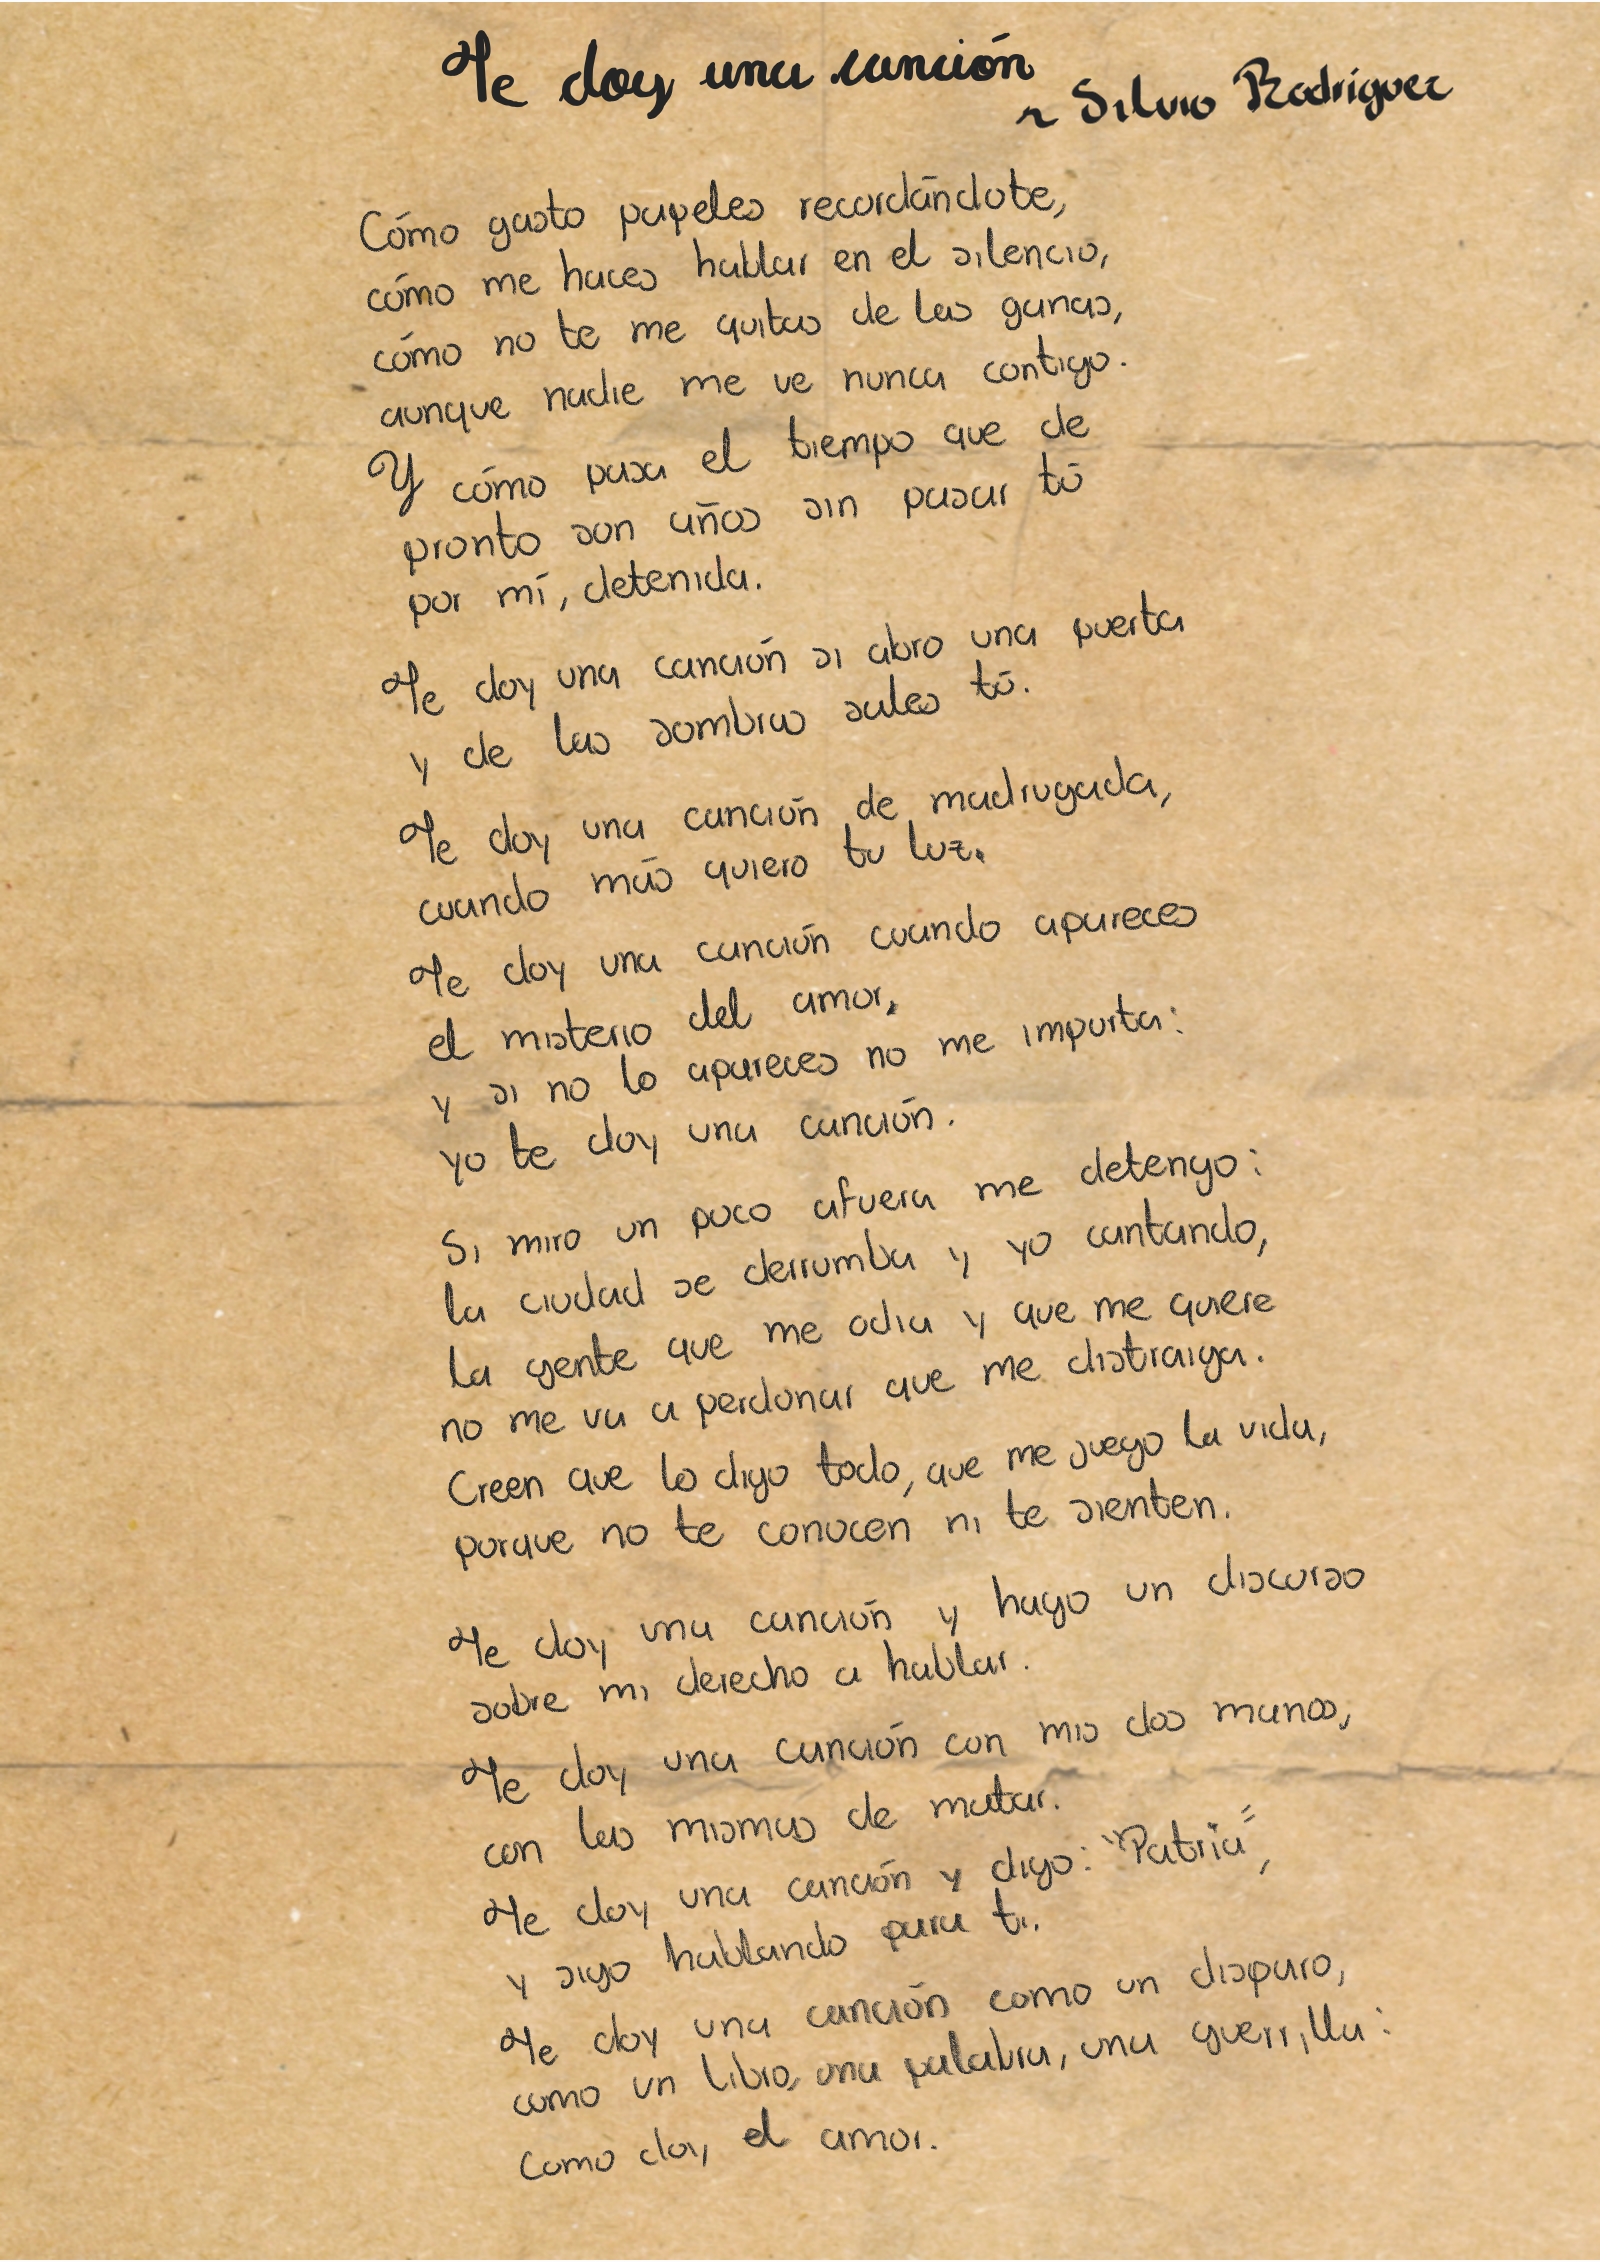 Te doy una canción
~ Silvio Rodríguez
Cómo gasto papeles recordándote,
cómo me haces hablar en el silencio,
cómo no te me quitas de las ganas,
aunque nadie me ve nunca contigo.
Y cómo pasa el tiempo que de
pronto son años sin pasar tú
por mí, detenida.
Te doy una canción si abro una puerta
y de las sombras sales tú.
Te doy una canción de madrugada,
cuando más quiero tu luz.
Te doy una canción cuando apareces
el misterio del amor,
y si no lo apareces no me importa:
yo te doy una canción.
Si miro un poco afuera me detengo:
la ciudad se derrumba y yo cantando,
la gente que me odia y que me quiere
no me va a perdonar que me distraiga.
Creen que lo digo todo, que me juego la vida,
porque no te conocen ni te sienten.
Te doy una canción y hago un discurso
sobre mi derecho a hablar.
Te doy una canción con mis dos manos,
con las mismas de matar.
Te doy una canción y digo: "Patria",
y sigo hablando para ti.
Te doy una canción como un disparo,
como un libro, una palabra, una guerrilla:
Como doy el amor.